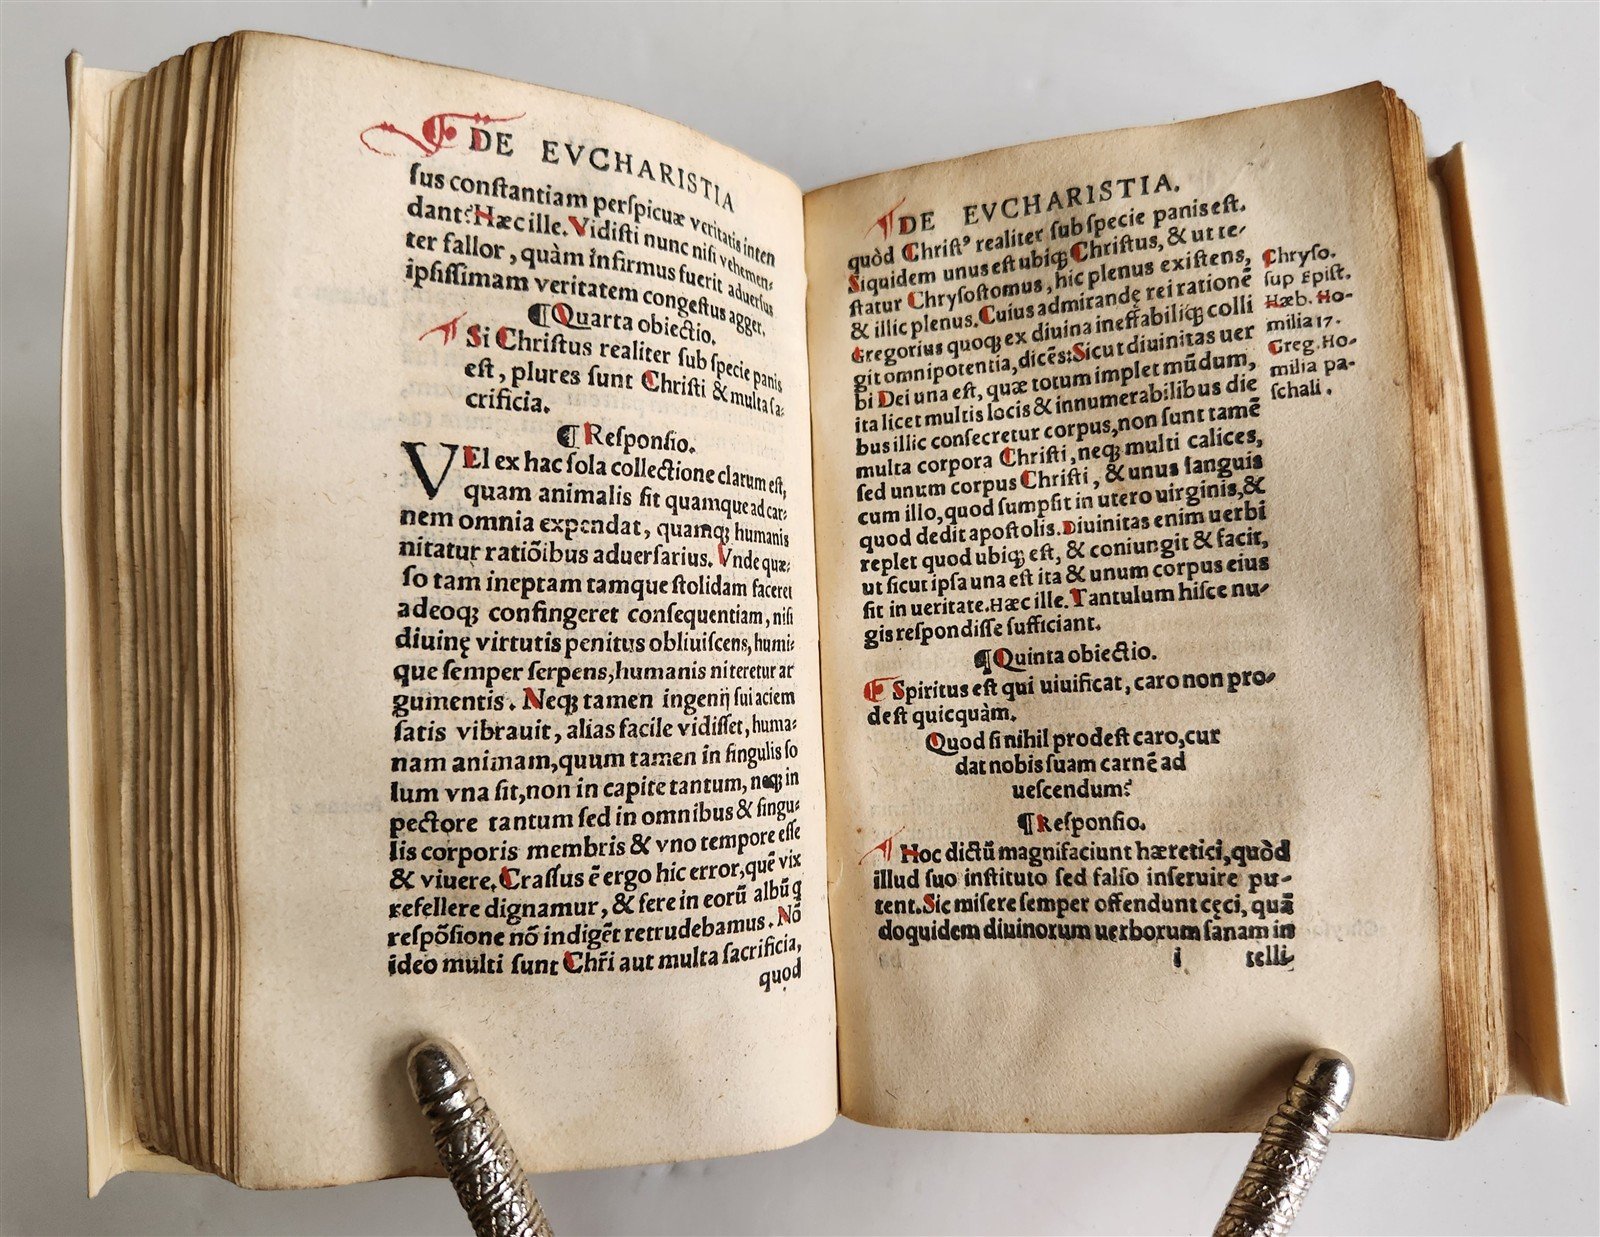 DE EVCHARISTIA
ſus conſtantiam perſpicuæ veritatis inten
dant? Hæc ille. Vidiſti nunc niſi vehemen-
ter fallor, quàm infirmus fuerit aduerſus
ipſiſſimam veritatem congeſtus agger.
¶ Quarta obiectio.
¶ Si Chriſtus realiter ſub ſpecie panis
eſt, plures ſunt Chriſti & multa ſa-
crificia.
¶ Reſponſio.
VEl ex hac ſola collectione clarum eſt,
quam animalis ſit quamque ad car-
nem omnia expendat, quamqꝫ humanis
nitatur ratiõibus aduerſarius. Vnde quæ-
ſo tam ineptam tamque ſtolidam faceret
adeoqꝫ confingeret conſequentiam, niſi
diuinę virtutis penitus obliuiſcens, humi-
que ſemper ſerpens, humanis niteretur ar
gumentis. Neqꝫ tamen ingenij ſui aciem
ſatis vibrauit, alias facile vidiſſet, huma-
nam animam, quum tamen in ſingulis ſo
lum vna ſit, non in capite tantum, neqꝫ in
pectore tantum ſed in omnibus & ſingu-
lis corporis membris & vno tempore eſſe
& viuere. Craſſus ẽ ergo hic error, quẽ vix
refellere dignamur, & fere in eorũ albũ q
reſpõſione nõ indigẽt retrudebamus. Nõ
ideo multi ſunt Chr̃i aut multa ſacrificia,
quod
¶ DE EVCHARISTIA.
quòd Chriſtꝰ realiter ſub ſpecie panis eſt.
Siquidem unus eſt ubiqꝫ Chriſtus, & ut te-
ſtatur Chryſoſtomus, hic plenus exiſtens,
& illic plenus. Cuius admirandę rei rationẽ
Gregorius quoqꝫ ex diuina ineffabiliqꝫ colli
git omnipotentia, dicẽs: Sicut diuinitas uer
bi Dei una eſt, quæ totum implet mũdum,
ita licet multis locis & innumerabilibus die
bus illic conſecretur corpus, non ſunt tamẽ
multa corpora Chriſti, neqꝫ multi calices,
ſed unum corpus Chriſti, & unus ſanguis
cum illo, quod ſumpſit in utero uirginis, &
quod dedit apoſtolis. Diuinitas enim uerbi
replet quod ubiqꝫ eſt, & coniungit & facit,
ut ſicut ipſa una eſt ita & unum corpus eius
ſit in ueritate. Hæc ille. Tantulum hiſce nu-
gis reſpondiſſe ſufficiant.
¶ Quinta obiectio.
Spiritus eſt qui uiuificat, caro non pro-
deſt quicquàm.
Quod ſi nihil prodeſt caro, cur
dat nobis ſuam carnẽ ad
ueſcendum?
¶ Reſponſio.
¶ Hoc dictũ magnifaciunt hæretici, quòd
illud ſuo inſtituto ſed falſo inſeruire pu-
tent. Sic miſere ſemper offendunt cęci, quã
doquidem diuinorum uerborum ſanam in
i telli-
Chryſo.
ſup Epiſt.
Hæb. Ho-
milia 17.
Greg. Ho-
milia pa-
ſchali.